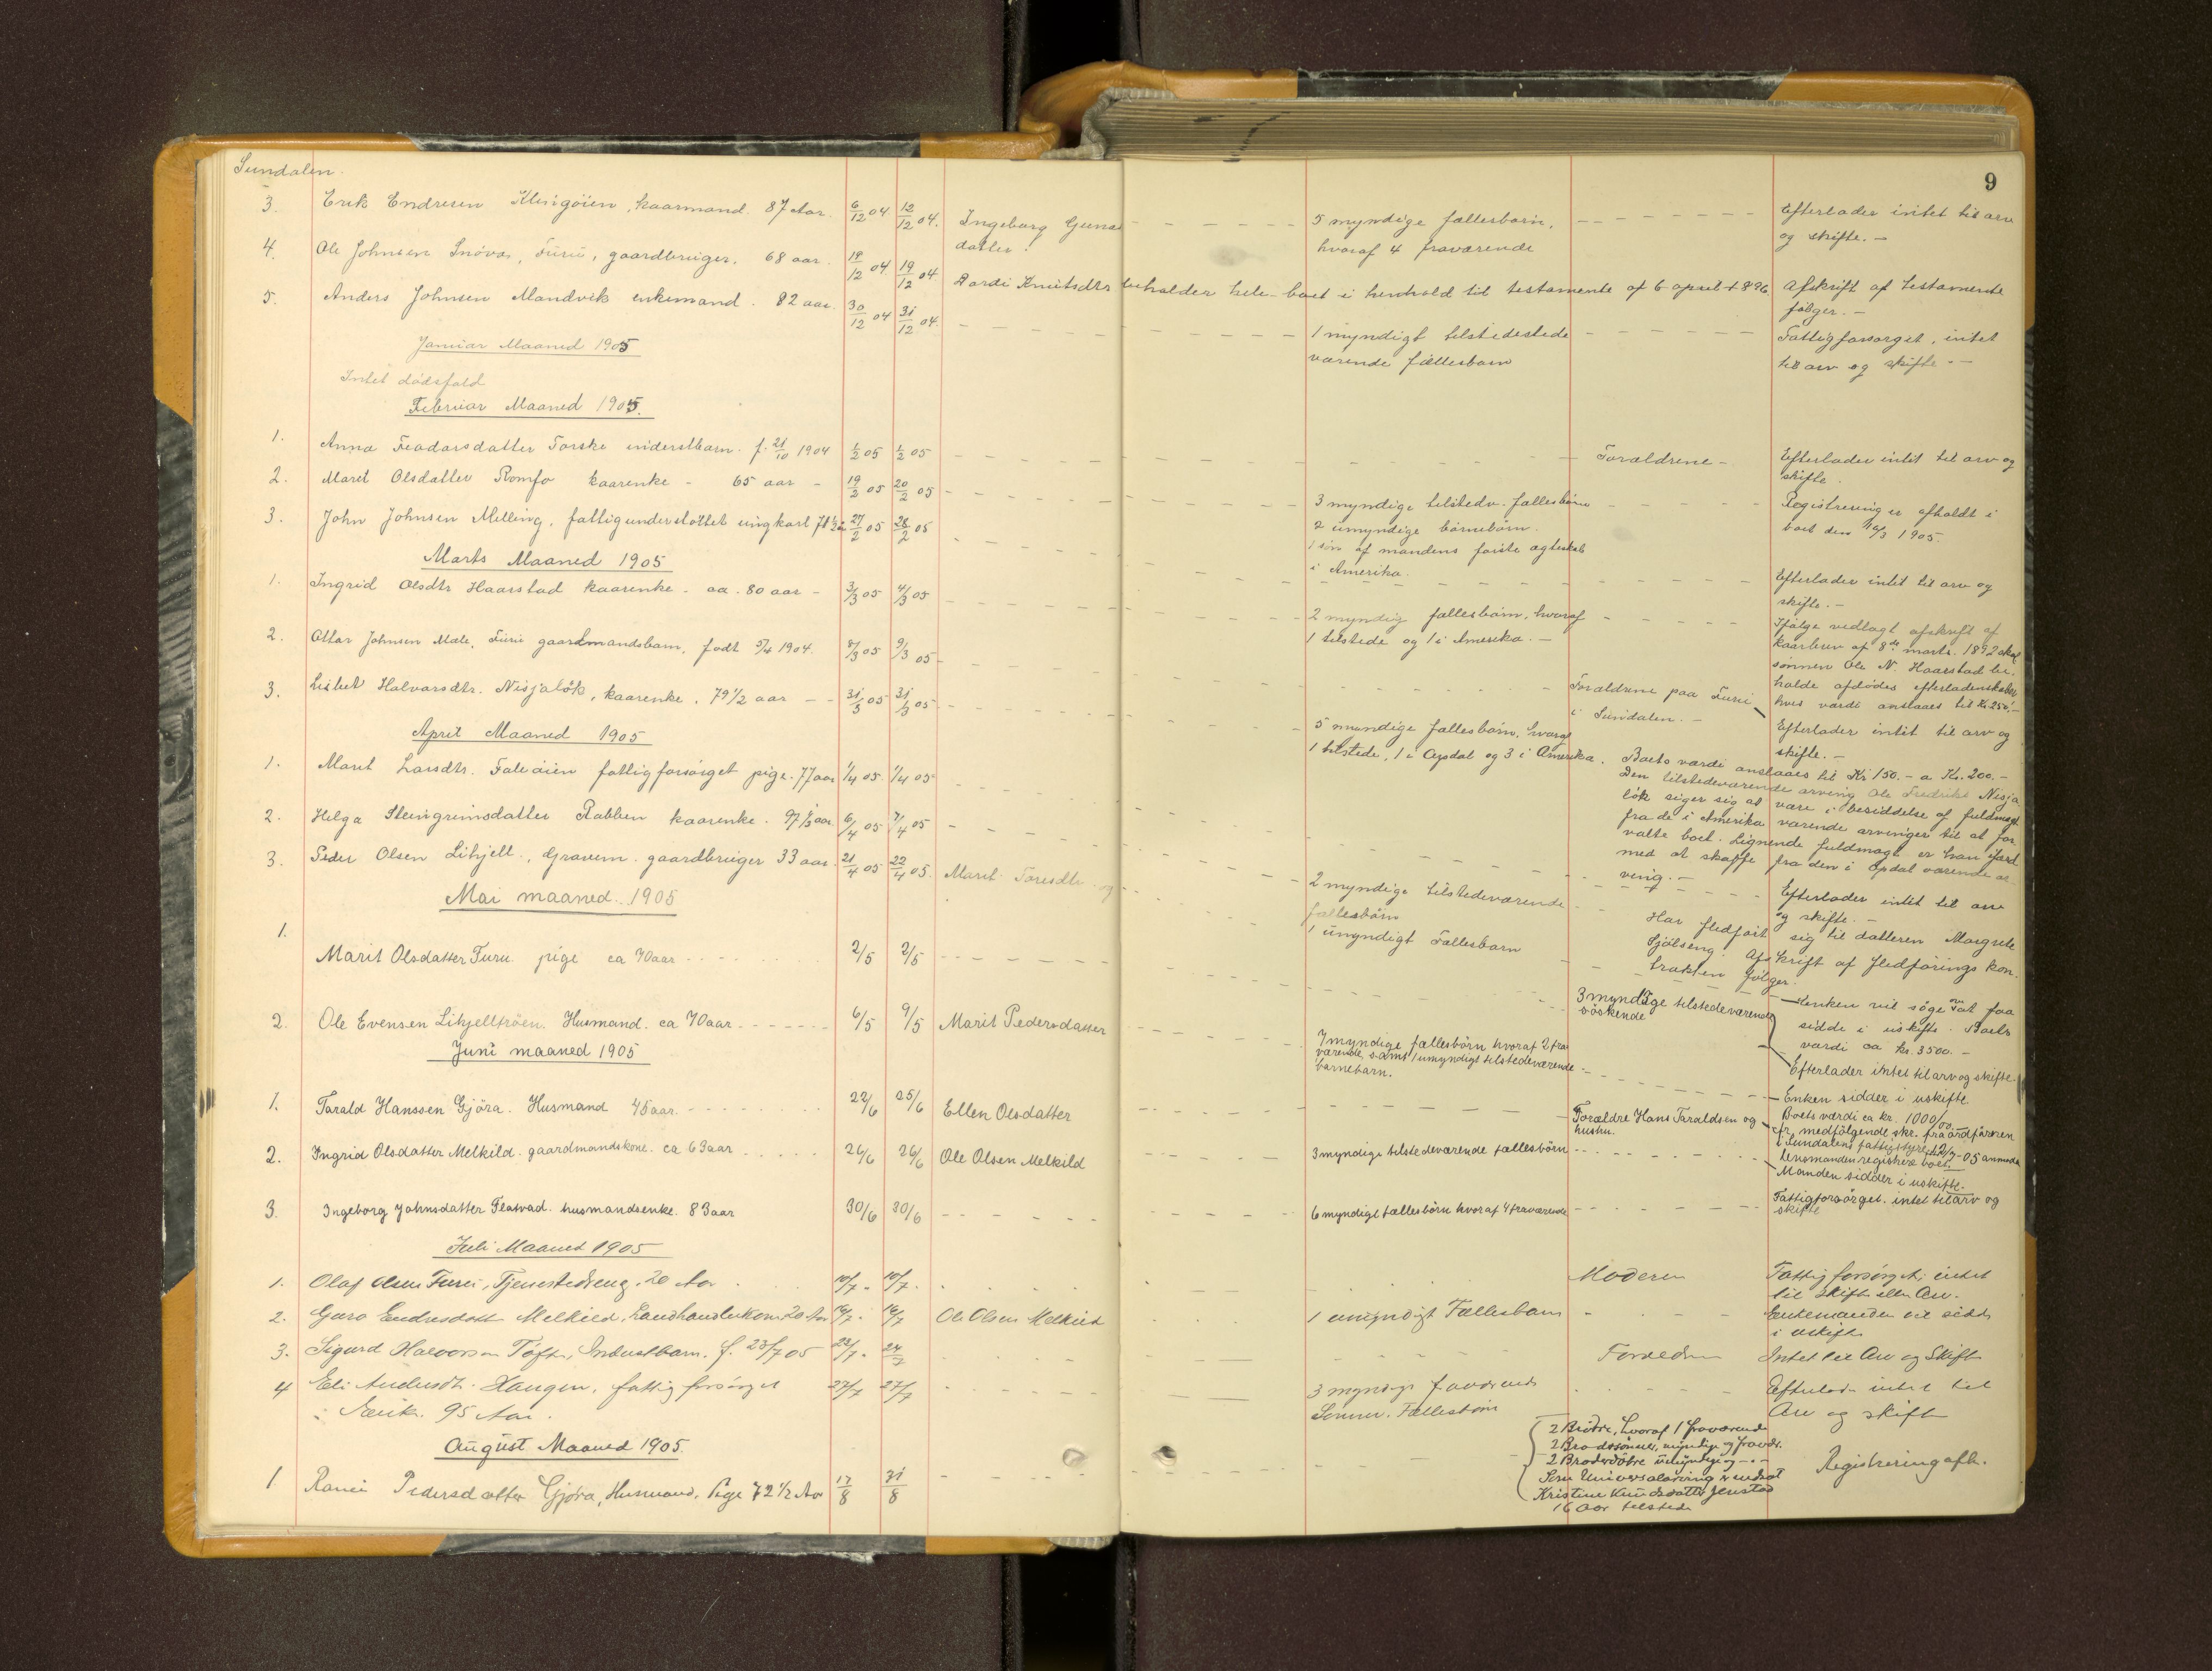 Sundalen.
9
3. Erik Endresen Klingöien, kaarmand. 87 Aar. 6/12 04 12/12 04. Ingeborg Gunnars
datter. 5 myndige fællesbørn, Efterlader intet til arv
hvoraf 4 fraværende og skifte. —
4. Ole Johnsen Snövas, Furu, gaardbruger. 68 aar. 19/12 04 19/12 04 Bardi Knutsdtr beholder hele boet i henhold til testamente af 6 april 1896. Afskrift af testamente
følger. —
5. Anders Johnsen Mandvik enkemand. 82 aar. 30/12 04 31/12 04. 1 myndigt tilstedestede Fattigforsørget, intet
værende fællesbarn til arv og skifte. —
Januar Maaned 1905
Intet dödsfald
Februar Maaned 1905.
1. Anna Feodorsdatter Torske inderstbarn. f. 21/10 1904 1/2 05 1/2 05 Forældrene Efterlader intet til arv og
skifte.
2. Marit Olsdatter Romfo kaarenke - 65 aar - 19/2 05 20/2 05 3 myndige tilstedv. fællesbörn Registrering er afholdt i
2 umyndige börnebörn. boet den 10/3 1905.
1 sön af mandens förste ægteskab
i Amerika.
3. John Johnsen Melling, fattigunderstöttet ungkarl 71 1/2 aar 27/2 05 28/2 05 Efterlader intet til arv og
skifte. —
Marts Maaned 1905
1. Ingrid Olsdtr Haarstad kaarenke - ca. 80 aar - 3/3 05 4/3 05 2 myndig fællesbörn, hvoraf
1 tilstede og 1 i Amerika. —
Ifølge vedlagt afskrift af
kaarbrev af 8de marts 1892 skal
sönnen Ole N. Haarstad be-
holde afdödes efterladenskaber
hves værdi anslaaes til Kr. 250,-
2. Ottar Johnsen Male, Furu gaardmandsbarn, födt 5/4 1904. 8/3 05 9/3 05 Forældrene paa Furu
i Sundalen. —
Efterlader intet til arv og
skifte. —
3. Lisbet Halvorsdtr. Nisjalök, kaarenke. 79 1/2 aar - - 31/3 05 31/3 05 5 myndige fællesbörn, hvoraf
1 tilstede, 1 i Opdal og 3 i Amerika. Boets værdi anslaaes til Kr 150.- a Kr. 200.-
Den tilstedeværende arving Ole Fredriks Nisja
lök siger sig at være i besiddelse af fuldmagt
fra de i Amerika værende arvinger til at for
valte boet. Lignende fuldmagt er han ifærd
med at skaffe fra den i Opdal værende ar
ving. —
April Maaned 1905
1. Marit Larsdtr. Faleöien fattigforsörget pige. 77 aar 1/4 05 1/4 05 Efterlader intet til arv
og skifte. —
2. Helga Steingrimsdatter Rabben kaarenke. 97 1/2 aar 6/4 05 7/4 05 2 myndige tilstedeværende
fællesbörn
Har fledfört sig til datteren Margrete
Sjölseng. Afskrift af fledförings kon
trakten fölger.
3. Peder Olsen Lihjell, Gravem. gaardbruger 33 aar. 21/4 05 22/4 05. Marit Toresdtr 1 umyndigt Fællesbarn Enken vil söge om at faa
sidde i uskifte. Boets
værdi ca kr. 3500. -
Mai maaned. 1905
1. Marit Olsdatter Furu. pige ca 70 aar 2/5 2/5 3 myndige tilstedeværende
söskende Efterlader intet til arv og skifte.
2. Ole Evensen Lihjelltröen. Husmand. ca 70 aar. 6/5 9/5 Marit Pedersdatter 7 myndige fællesbörn hvoraf 2 fra
værende, samt 1 umyndigt tilstedeværende
barnebarn. Enken sidder i uskifte.
Boets værdi ca kr. 1000,00
Juni maaned 1905
1. Tarald Hanssen Gjöra. Husmand 45 aar. 22/6 25/6 Ellen Olsdatter Forældre Hans Taraldsen og
hustru. cfr. medfölgende skr. fra ordföreren
i Sundalens fattigstyre
Lensmanden registrere boet.
2. Ingrid Olsdatter Melkild. gaardmandskone. ca 63 aar 26/6 26/6 Ole Olsen Melkild 3 myndige tilstedeværende fællesbörn Manden sidder i uskifte.
3. Ingeborg Johnsdatter Flatvad. husmandsenke. 83 aar 30/6 30/6 6 myndige fællesbörn hvoraf 4 fraværende Fattigforsörget. intet til arv og
skifte
Juli Maaned 1905
1. Olaf Olsen Furu, Tjenestedreng. 20 Aar 10/7. 10/7. Moderen Fattigforsörget; intet
til Skifte eller Arv.
2. Guro Endresdatt Melkild, Landhandlerkone 20 Aar 16/7. 16/7 Ole Olsen Melkild 1 umyndigt Fællesbarn Enkemanden vil sidde
i uskifte
3. Sigurd Halvorsen Töfte, Inderstbarn. f. 23/7 05 23/7. 24/7 Forældrene Intet til Arv og Skifte
4 Eli Andersdt. Haugen, fattigforsörget 27/7 27/7 3 myndige fraværende Efterlader intet til
Enke. 95 Aar. Sönner. Fællesbörn Arv og skifte
August Maaned 1905.
1 Ranei Pedersdatter Gjöra, Husmand. Pige 72 1/2 Aar 17/8 31/8 2 Brödre, hvoraf 1 fraværende
2 Brodersönner, myndige og fravær.
2 Broderdötre umyndige - . -
Som Universalarving er indsat
Kristine Knudsdatter Jenstad
16 Aar tilstede
Registrering afh.